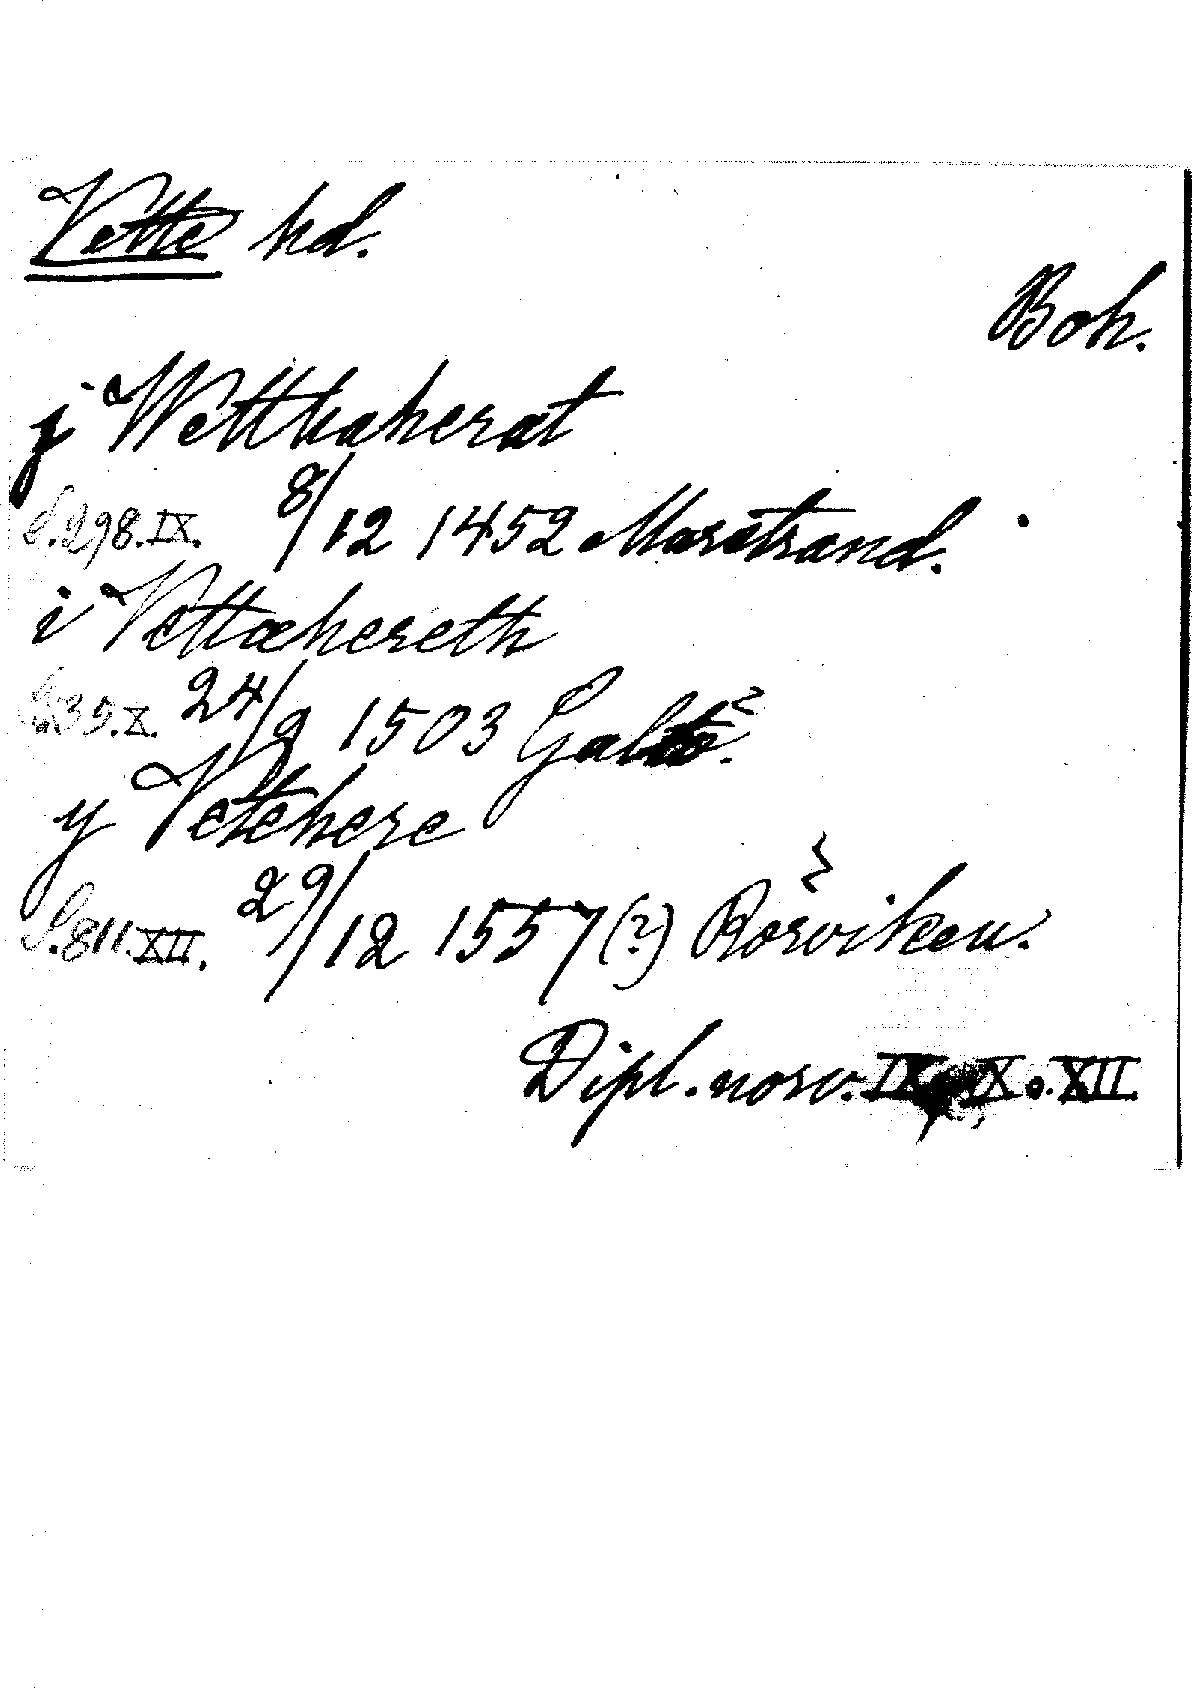 Vette hd.
Boh.
j Wetthaherat
S. 298. IX. 8/12 1452 Marstrand.
i Vettæhereth
S. 35. X. 24/9 1503 Galtö.
y Vetehere
S. 811. XII. 29/12 1557 (?) Rörviken.
Dipl. norv. IX, X o. XII.